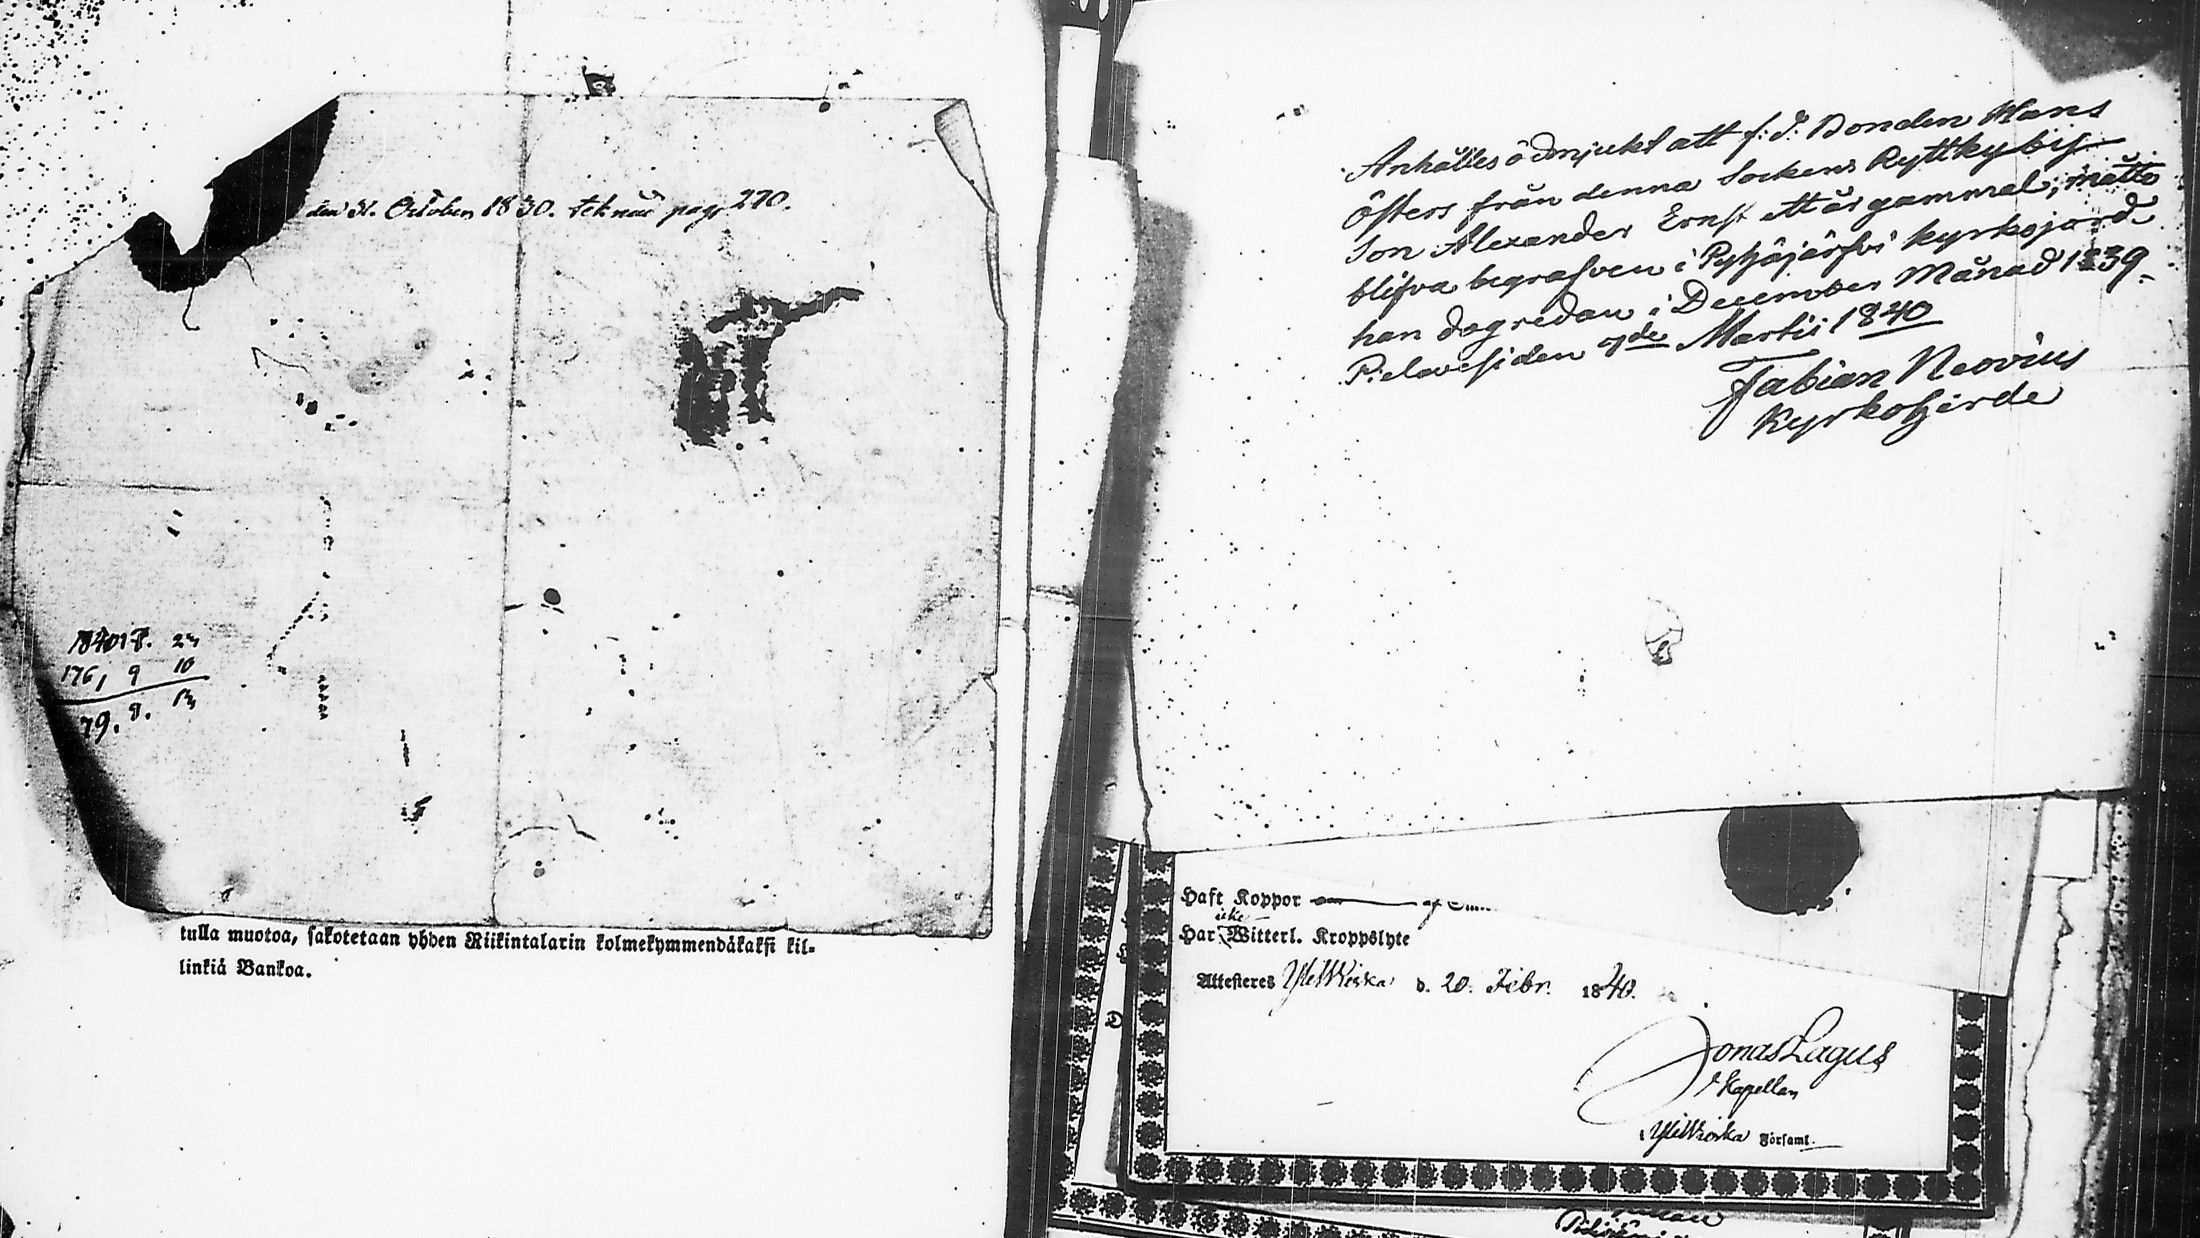 den 31. October 1830. teknad pag. 270.
176, 9 10
79. 8.
tulla muotoa, sakotetaan yhden Riikintalarin kolmekymmendäkaksi kil-
linkiä Bankoa.
Anhålles ödmjukt att f: d: Bonden Hans
Östers från denna Sockens Ryttky by
Son Alexander Ernst ett år gammal, måtte
blifva begrafven i Pyhäjärfvi kyrkojord
han dog redan i December Månad 1839.
Pielavesi den 7de Martii 1840
Fabian Neovius
Kyrkoherde
Haft Koppor
icke
Har Witterl. Kroppslyte
Attesteres Ylivieska d. 20. Febr. 1840.
Jonas Lagus
Kapellan
i Ylivieska Församl.